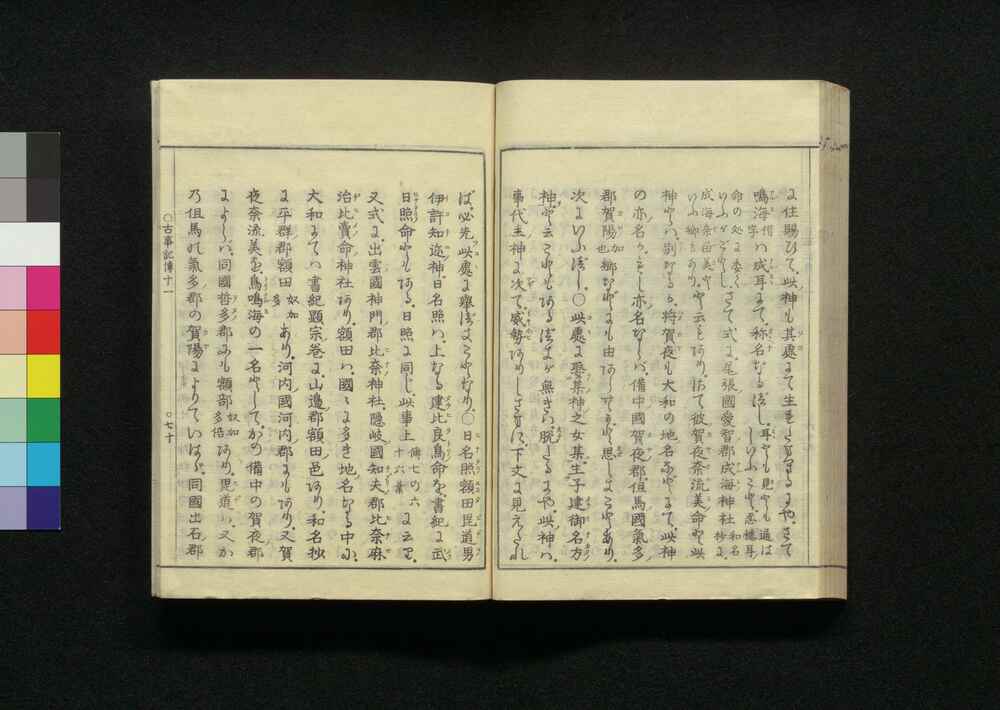 に住賜ひて、此神も其處にて生坐るなるにや、さて
鳴海 は成耳にて、称名なるべし、耳とも見とも通は
命の処に委く さて式に、尾張國愛智郡成海神社 和名抄に
成海奈留美 と云もあり、さて彼賀夜奈流美命と此
神とは、別なるか、将賀夜も大和の地名なにて、此神
の亦名か、もし亦名ならば、備中國賀夜郡、但馬國氣多
郡賀陽 加也 郷などにも由ありてや、と思しきことあり、
次にいふべし、○此處に娶某神之女某生子建御名方
神と云ことも有べきが無きは、脱たるにや、此神は、
事代主神に次て、威勢ありしさまに、下文に見えたれ
ば、必先此處に擧べきことなり、○日名照額田毘道男
伊許知迩神、日名照は、上なる建比良鳥命を、書紀に武
日照命ともある、日照に同じ、此事上 傳七の六十六葉 に云り、
又式に、出雲國神門郡比奈神社、隠岐國知夫郡比奈麻
治比賣命神社あり、額田は、國々に多き地名なる中に、
大和にては、書紀顕宗巻に、山邊郡額田邑あり、和名抄
に平群郡額田 奴加多 あり、河内國河内郡にもあり、又賀
夜奈流美を、鳥鳴海の一名として、かの備中の賀夜郡
によらば、同國哲多郡にも額部 奴加多倍 あり、毘道は、又か
乃但馬の氣多郡の賀陽によりていはゞ、同國出石郡
○古事記傳十一
○七十